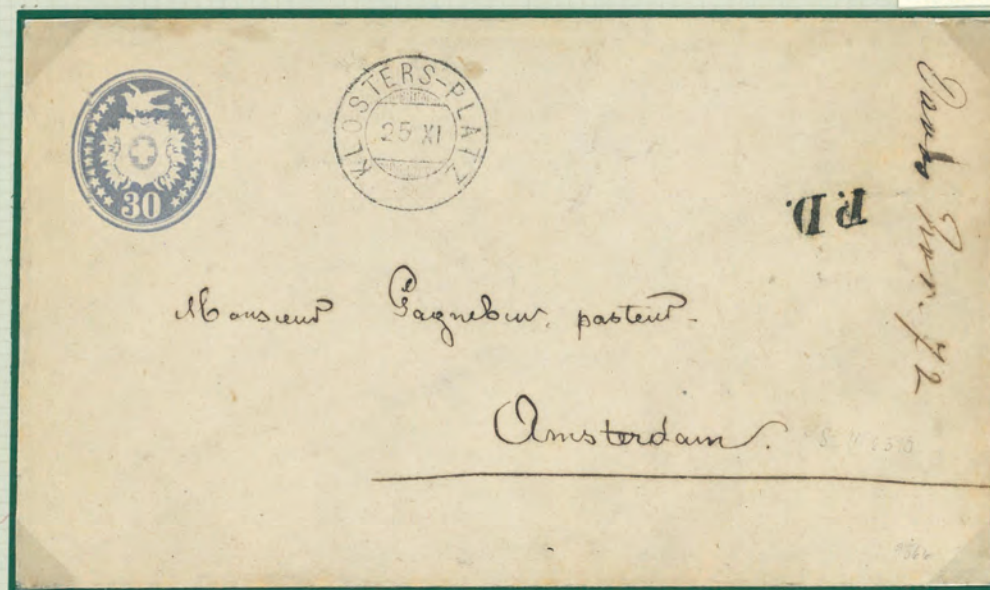 KLOSTERS-PLATZ
25 XI
30
P.D.
Nov. 72
Monsieur Gagnebin, pasteur.
Amsterdam.